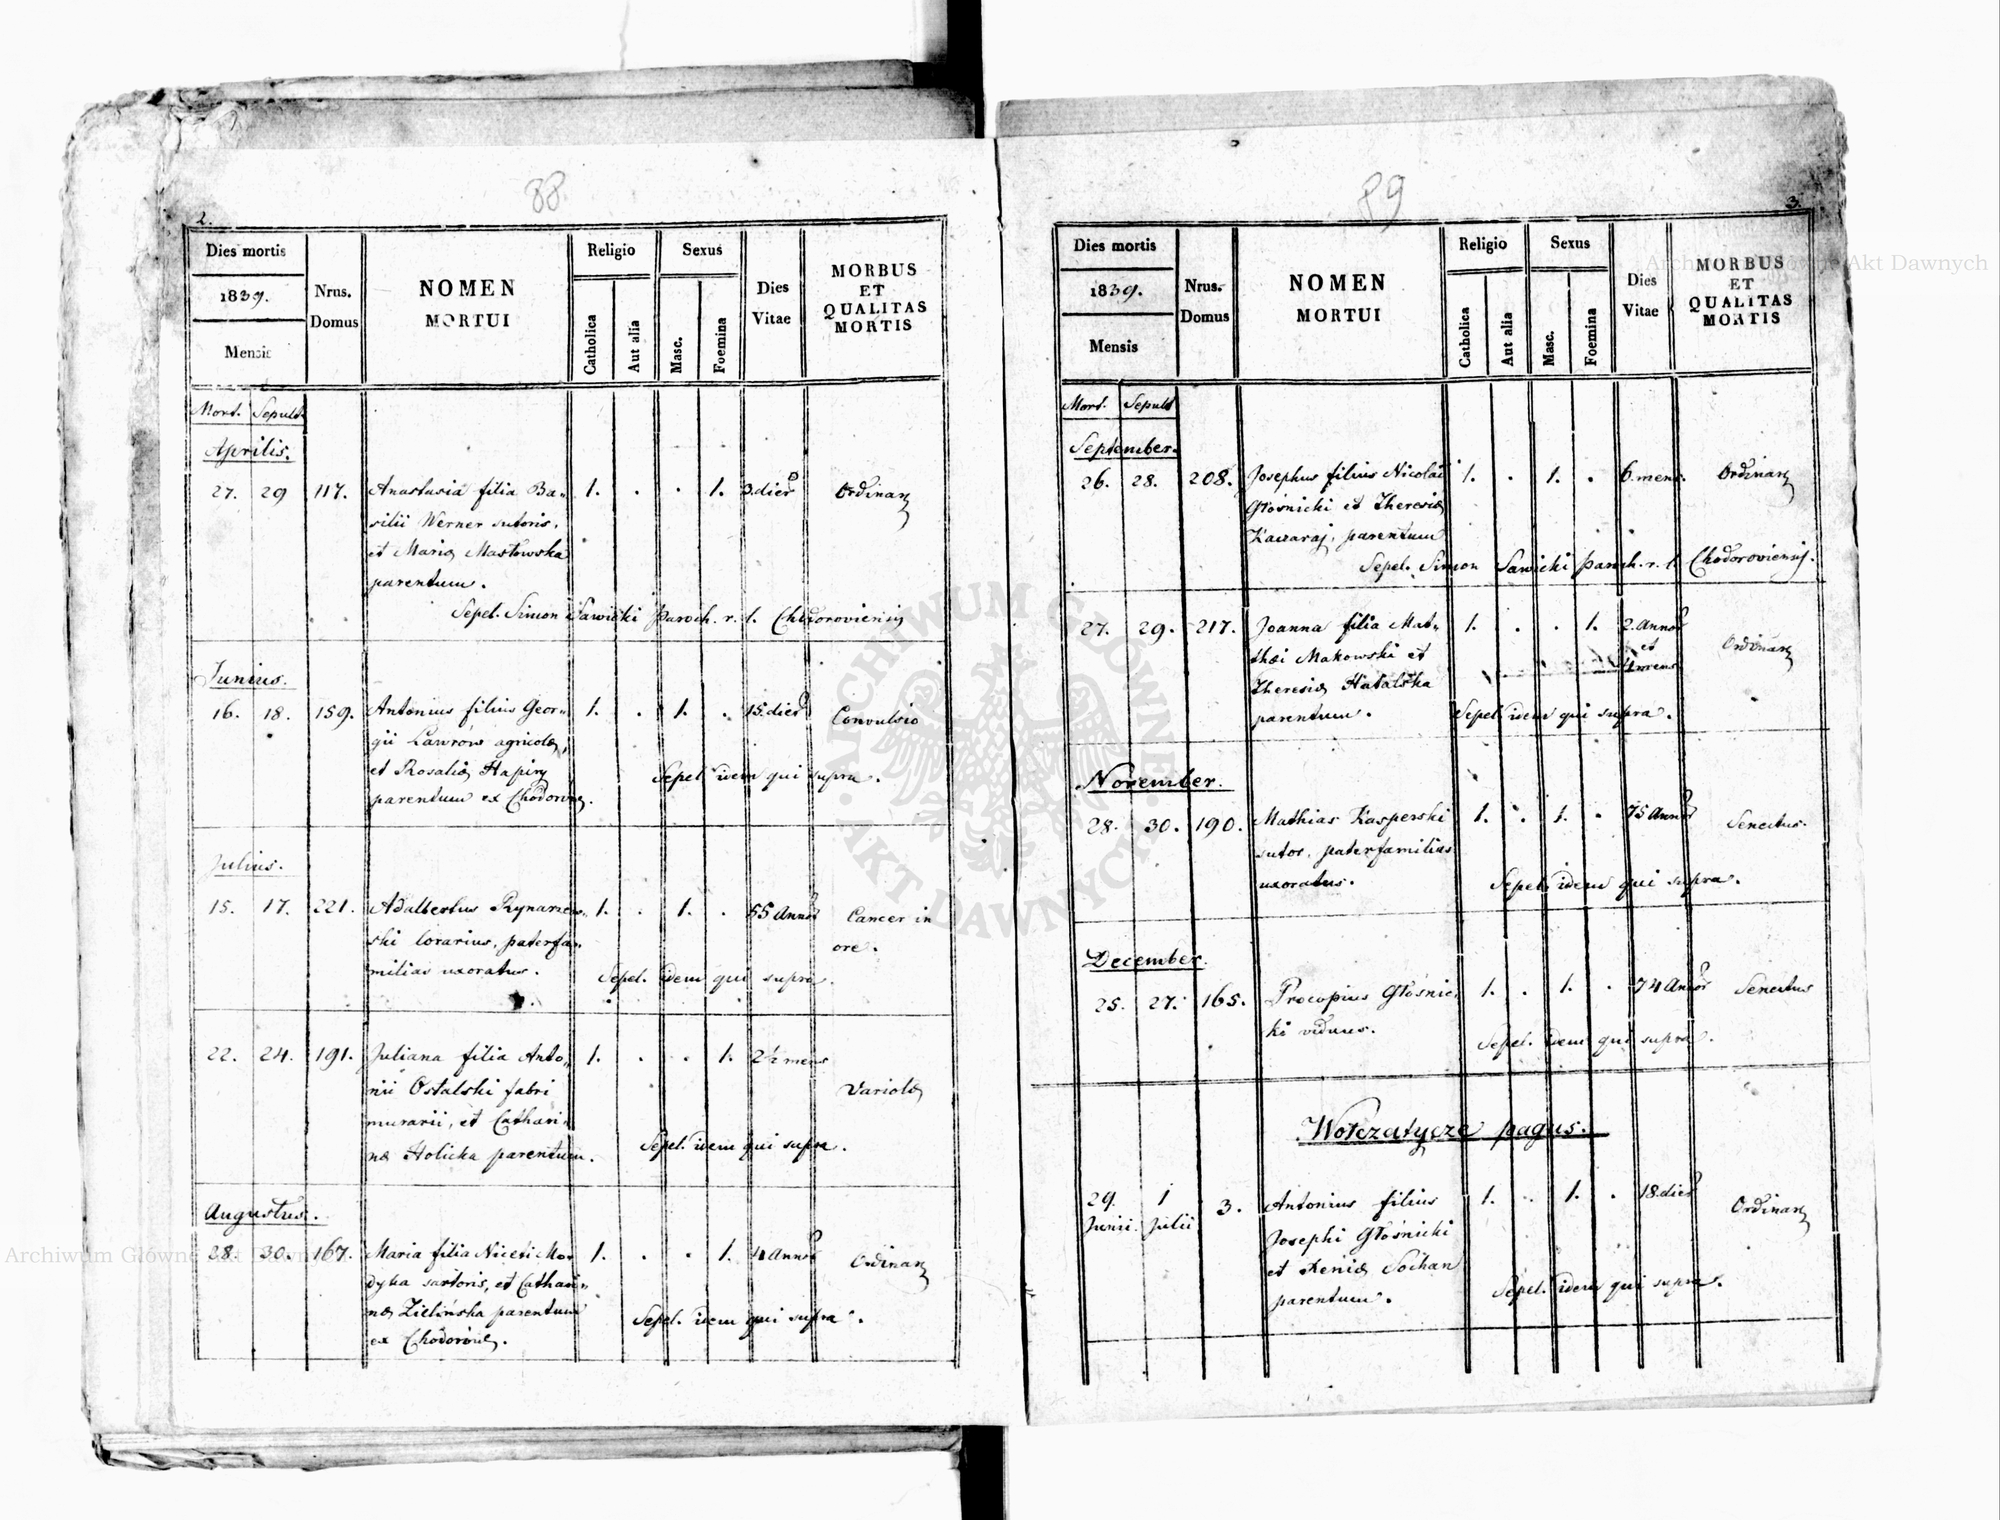 88
2.
Dies mortis
1839.
Mensis
Nrus.
Domus
NOMEN
MORTUI
Religio
Catholica
Aut alia
Sexus
Masc.
Foemina
Dies
Vitae
MORBUS
ET
QUALITAS
MORTIS
Mort. Sepult.
Aprilis.
27. 29 117. Anastasia filia Ba- 1. . . 1. 3. dier Ordinar
silii Werner sutoris,
et Mariæ Masłowska
parentum.
Sepel. Simon Sawicki Paroch. r. l. Chodoroviensis
Junius.
16. 18. 159. Antonius filius Geor- 1. . 1. . 15. dier Convulsio
gii Lawrów agricolæ,
et Rosaliæ Hapiy
parentum ex Chodorov.
Sepel. idem qui supra.
Julius.
15. 17. 221. Adalbertus Rynarzew- 1. . 1. . 55 Annor Cancer in
ski lorarius, paterfa- ore.
milias uxoratus.
Sepel. idem qui supra.
22. 24. 191. Juliana filia Anto- 1. . . 1. 2½ mens
nii Ostalski fabri Variolæ
murarii, et Cathari-
næ Holicka parentum.
Sepel. idem qui supra.
Augustus.
28. 30. 167. Maria filia Niceti Mo- 1. . . 1. 4 Annor Ordinar
dyka sartoris, et Cathari-
næ Zielińska parentum
ex Chodorov.
Sepel. idem qui supra.
89
3.
Dies mortis
1839.
Mensis
Nrus.
Domus
NOMEN
MORTUI
Religio
Catholica
Aut alia
Sexus
Masc.
Foemina
Dies
Vitae
MORBUS
ET
QUALITAS
MORTIS
Mort. Sepult
September.
26. 28. 208. Josephus filius Nicolai 1. . 1. . 6. mens. Ordinar
Głośnicki et Theresiæ
parentum
Sepel. Simon Sawicki Paroch. r. l. Chodoroviensis.
27. 29. 217. Joanna filia Mat- 1. . . 1. 2. Annor
thæi Makowski et et Ordinar
Theresiæ Hatalska mens
parentum. Sepel. idem qui supra.
November.
28. 30. 190. Mathias Kasperski 1. . 1. . 75 Annor Senectus.
sutor, paterfamilias
uxoratus. Sepel. idem qui supra.
December.
25. 27. 165. Procopius Głośnic- 1. . 1. . 74 Annor Senectus
ki viduus. Sepel. idem qui supra.
Wołczatycze pagus.
29. 1 3. Antonius filius 1. . 1. . 18. dier Ordinar
Junii. Julii Josephi Głośnicki
et Xeniæ Sochan
parentum. Sepel. idem qui supra.
ARCHIWUM GŁÓWNE AKT DAWNYCH
Archiwum Główne Akt Dawnych
Archiwum Główne Akt Dawnych